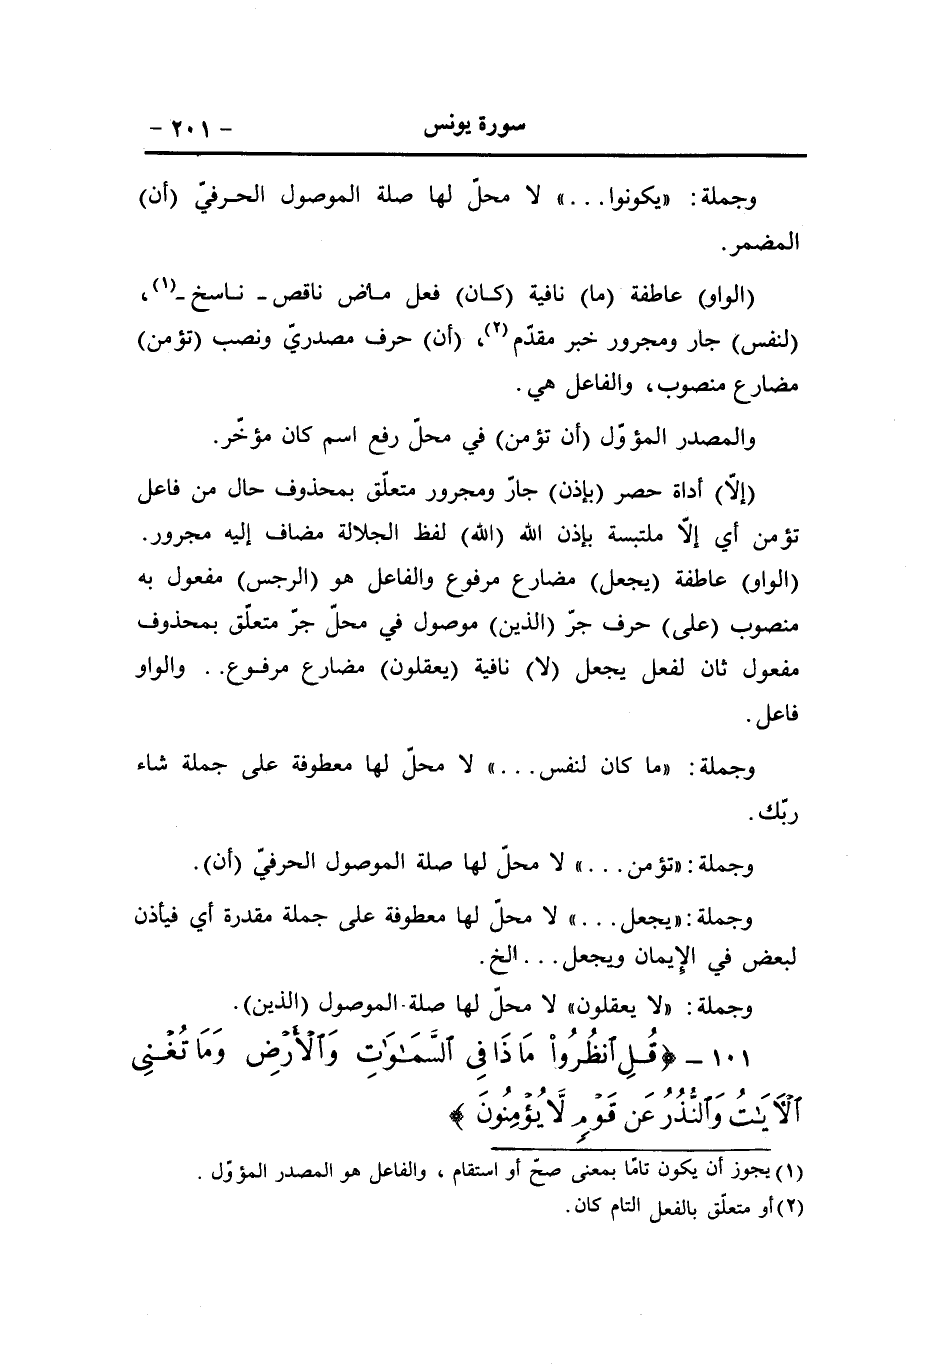 سورة يونس - ٢٠١ -
وجملة: «يكونوا...» لا محلّ لها صلة الموصول الحرفيّ (أن)
المضمر.
(الواو) عاطفة (ما) نافية (كان) فعل ماض ناقص ـ ناسخ ـ(١)،
(لنفس) جار ومجرور خبر مقدّم(٢)، (أن) حرف مصدريّ ونصب (تؤمن)
مضارع منصوب، والفاعل هي.
والمصدر المؤوّل (أن تؤمن) في محلّ رفع اسم كان مؤخّر.
(إلّا) أداة حصر (بإذن) جارّ ومجرور متعلّق بمحذوف حال من فاعل
تؤمن أي إلّا ملتبسة بإذن الله (الله) لفظ الجلالة مضاف إليه مجرور.
(الواو) عاطفة (يجعل) مضارع مرفوع والفاعل هو (الرجس) مفعول به
منصوب (على) حرف جرّ (الذين) موصول في محلّ جرّ متعلّق بمحذوف
مفعول ثان لفعل يجعل (لا) نافية (يعقلون) مضارع مرفوع.. والواو
فاعل.
وجملة: «ما كان لنفس...» لا محلّ لها معطوفة على جملة شاء
ربّك.
وجملة: «تؤمن...» لا محلّ لها صلة الموصول الحرفيّ (أن).
وجملة: «يجعل...» لا محلّ لها معطوفة على جملة مقدرة أي فيأذن
لبعض في الإيمان ويجعل... الخ.
وجملة: «لا يعقلون» لا محلّ لها صلة الموصول (الذين).
١٠١ - ﴿قُلِ ٱنظُرُوا۟ مَاذَا فِى ٱلسَّمَٰوَٰتِ وَٱلْأَرْضِ وَمَا تُغْنِى
ٱلْآيَٰتُ وَٱلنُّذُرُ عَن قَوْمٍ لَّا يُؤْمِنُونَ﴾
(١) يجوز أن يكون تامّا بمعنى صحّ أو استقام ، والفاعل هو المصدر المؤوّل .
(٢) أو متعلّق بالفعل التام كان.